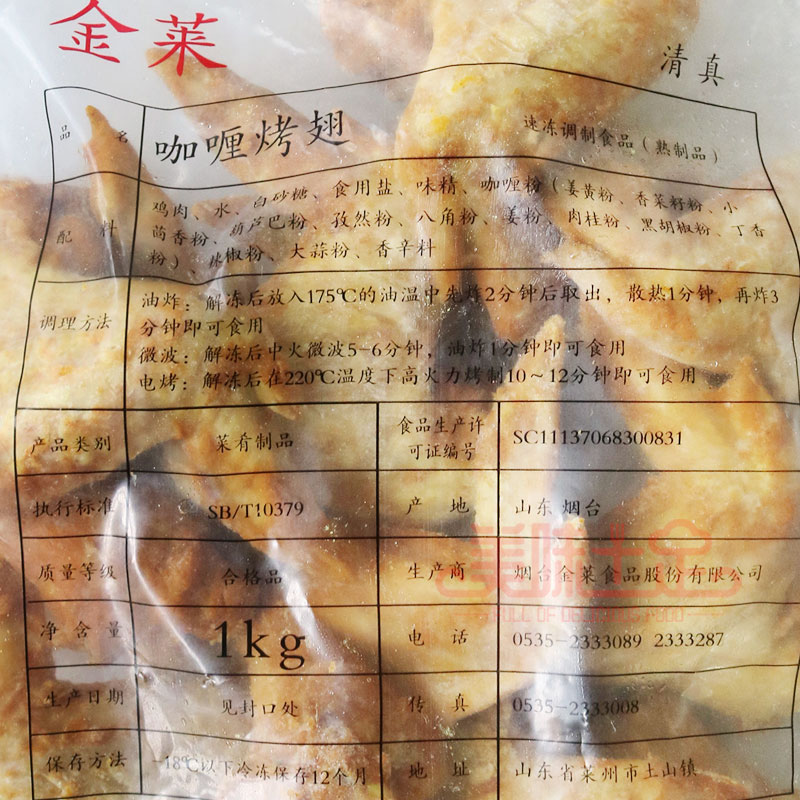 金莱
清真
品名 咖喱烤翅 速冻调制食品（熟制品）
配料 鸡肉、水、白砂糖、食用盐、味精、咖喱粉（姜黄粉、香菜籽粉、小
茴香粉、葫芦巴粉、孜然粉、八角粉、姜粉、肉桂粉、黑胡椒粉、丁香
粉）、辣椒粉、大蒜粉、香辛料
调理方法 油炸：解冻后放入175℃的油温中先炸2分钟后取出，散热1分钟，再炸3
分钟即可食用
微波：解冻后中火微波5-6分钟，油炸1分钟即可食用
电烤：解冻后在220℃温度下高火力烤制10～12分钟即可食用
产品类别 菜肴制品 食品生产许
可证编号 SC11137068300831
执行标准 SB/T10379 产地 山东 烟台
质量等级 合格品 生产商 烟台金莱食品股份有限公司
美味十足
FULL OF DELICIOUS FOOD
净含量 1kg 电话 0535-2333089 2333287
生产日期 见封口处 传真 0535-2333008
保存方法 -18℃以下冷冻保存12个月 地址 山东省莱州市土山镇